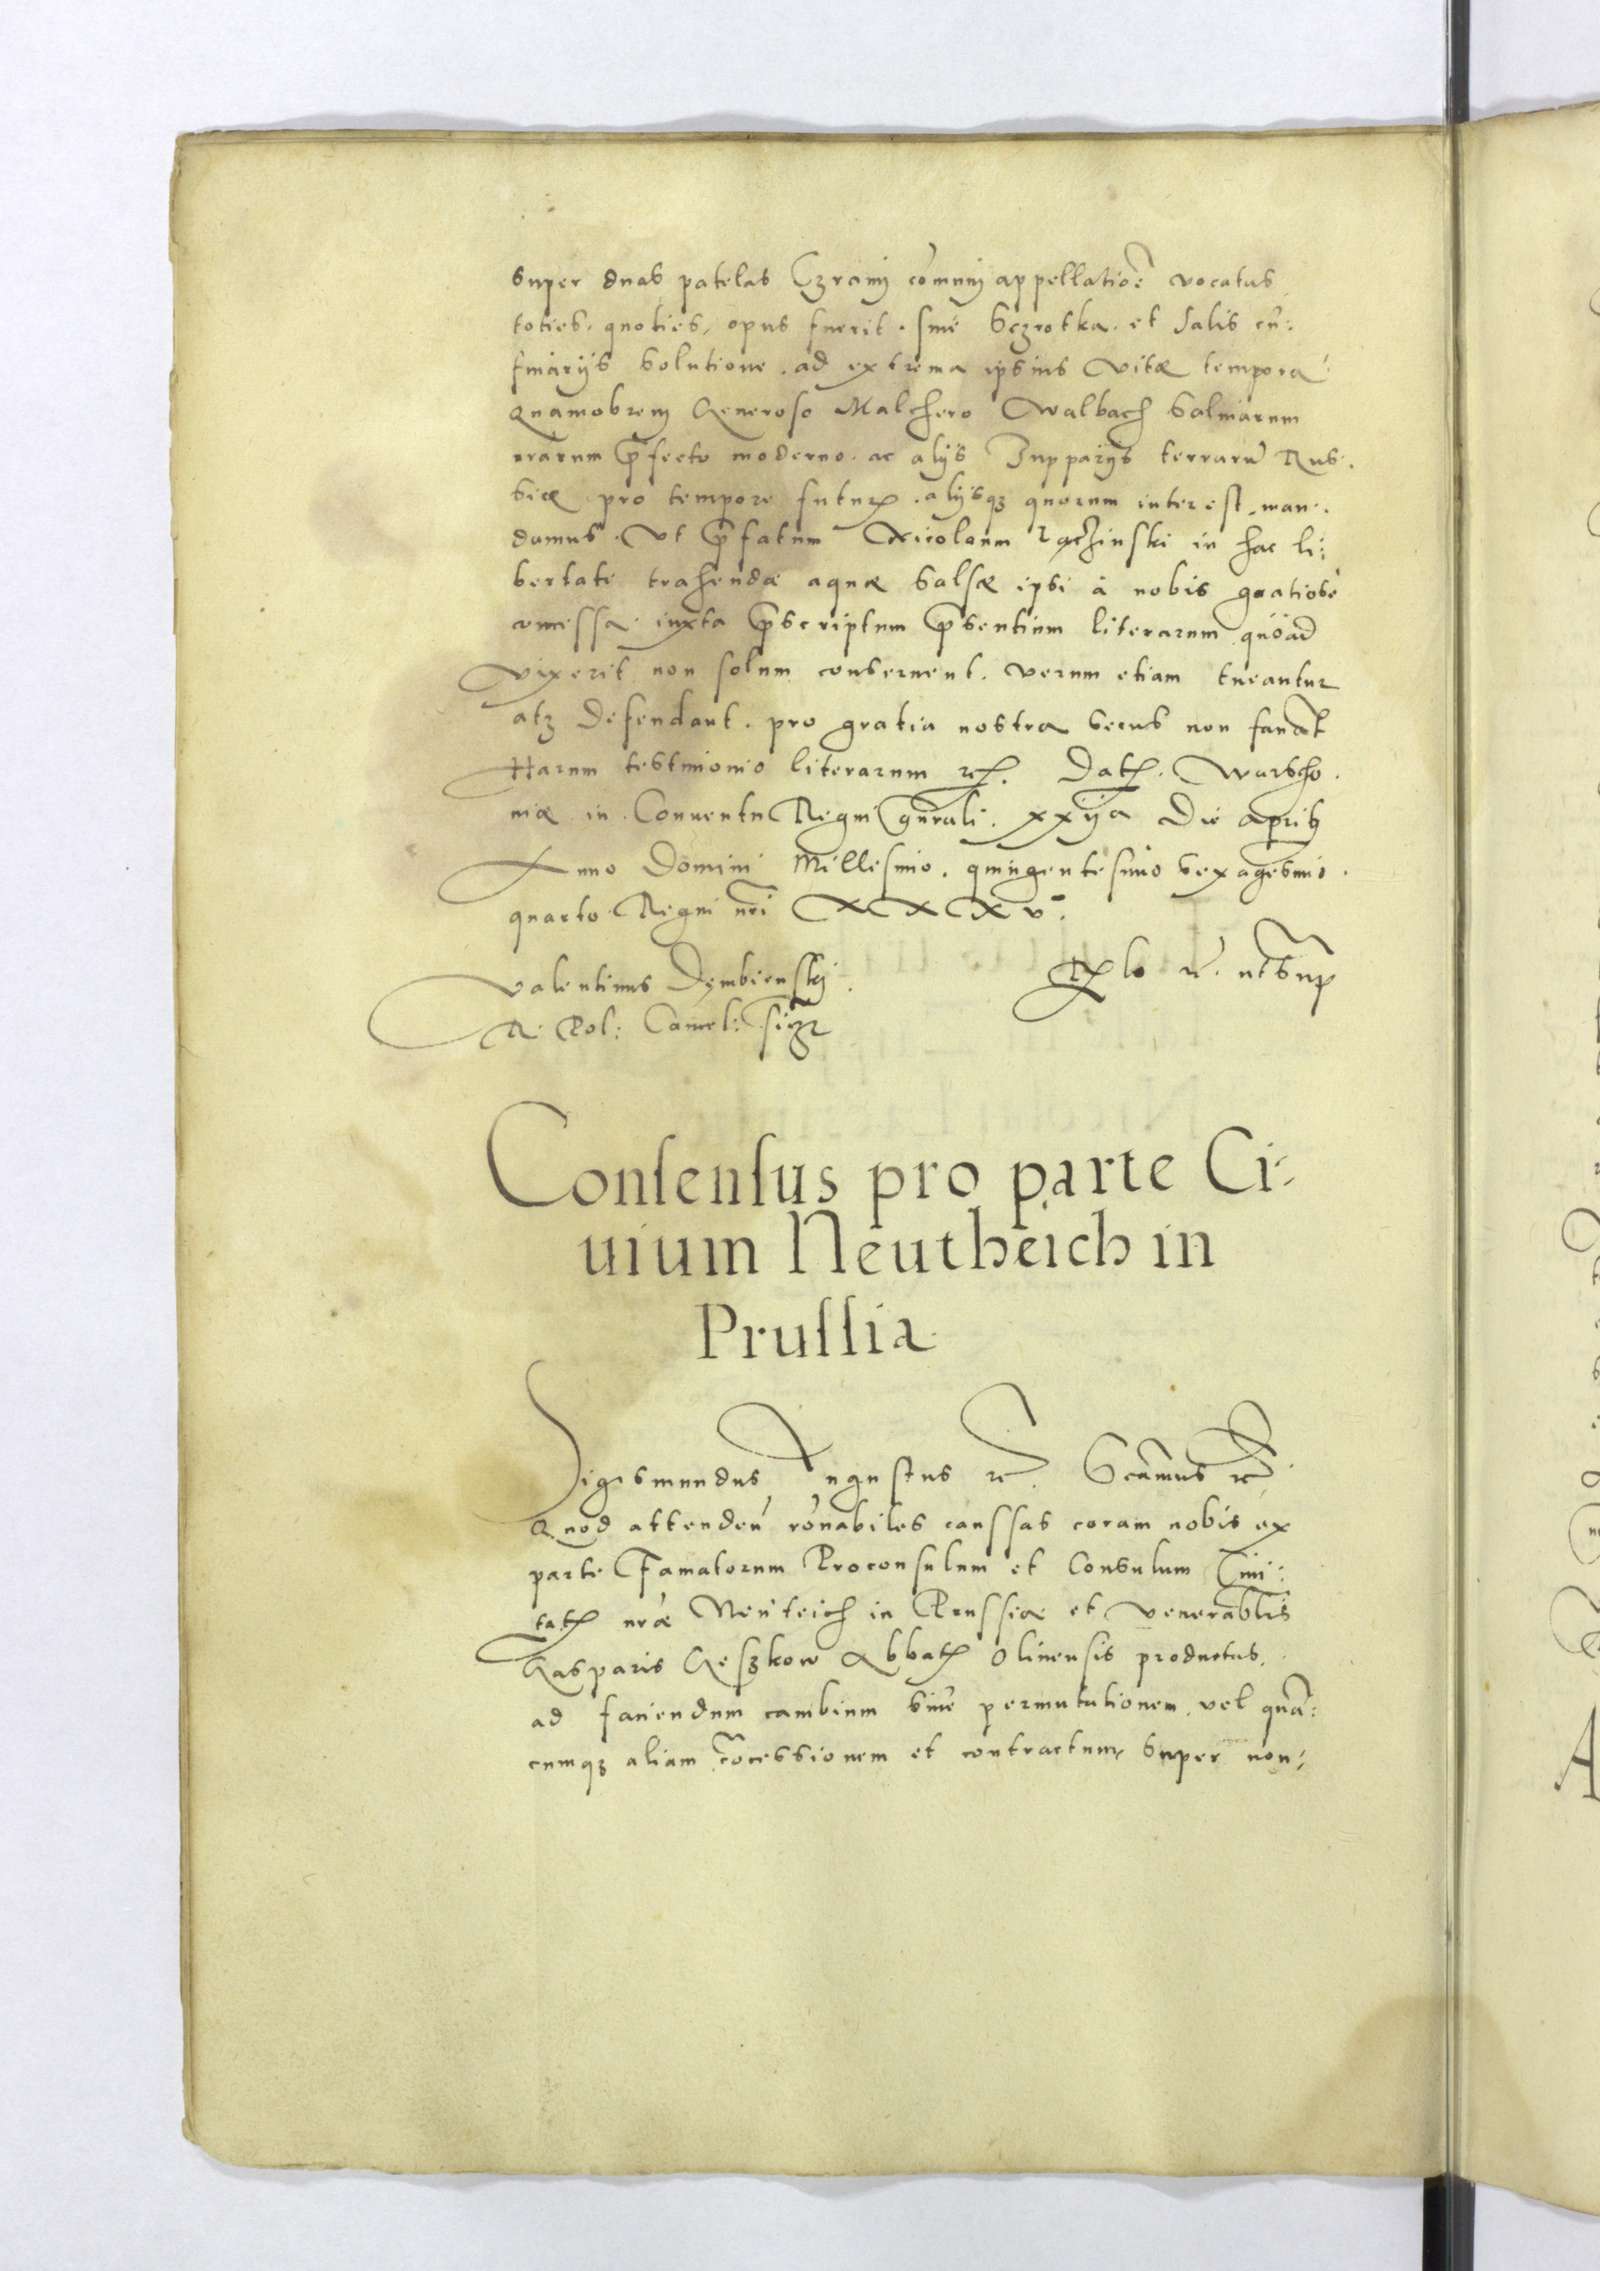 super duas patelas Czranij com̄unij appellatioē vocatas
toties. quoties, opus fuerit. sine Sczrotka. et Salis cū:
finarijs solutione. ad extrema ipsius vitæ tempora
Quamobrem Generoso Malchero Walbach Salinarum
nrarum p̄fecto moderno. ac alijs Zupparijs terrarū Rus:
siæ pro tempore futur. alijsqз quorum interest. man:
damus. Ut p̄fatum Nicolaum in hac li:
bertate trahendæ aquæ salsæ ipsi à nobis gratiosè
concessa. iuxta p̄scriptum p̄sentium literarum quoad
vixerit non solum conservent. verum etiam tueantur
atqз defendant. pro gratia nostra secus non
Harum testimonio literarum Dat. Warscho.
niæ in Conventu Regni gn̄rali. xxija Die aprilis
Anno Domini Millesimo. quingentesimo sexagesimo.
quarto Regni nr̄i XXXV.
Valentinus Dembienskij.
R. Pol: Cancel: ssr
R. utsup
Consensus pro parte Ci-
uium Neutheich in
Prussia
Sigismundus Augustus rc. Scām̄us rc.
Quod attenden̄ rōnabiles caussas coram nobis ex
parte Famatorum Proconsulum et Consulum Ciui:
tat nr̄æ Neuteich in Prussia et venerabilis
Gasparis Geszkow Abbat Olivensis productas.
ad faciendum cambium sive permutationem. vel quā:
cumqз aliam cōcessionem et contractum, super non,